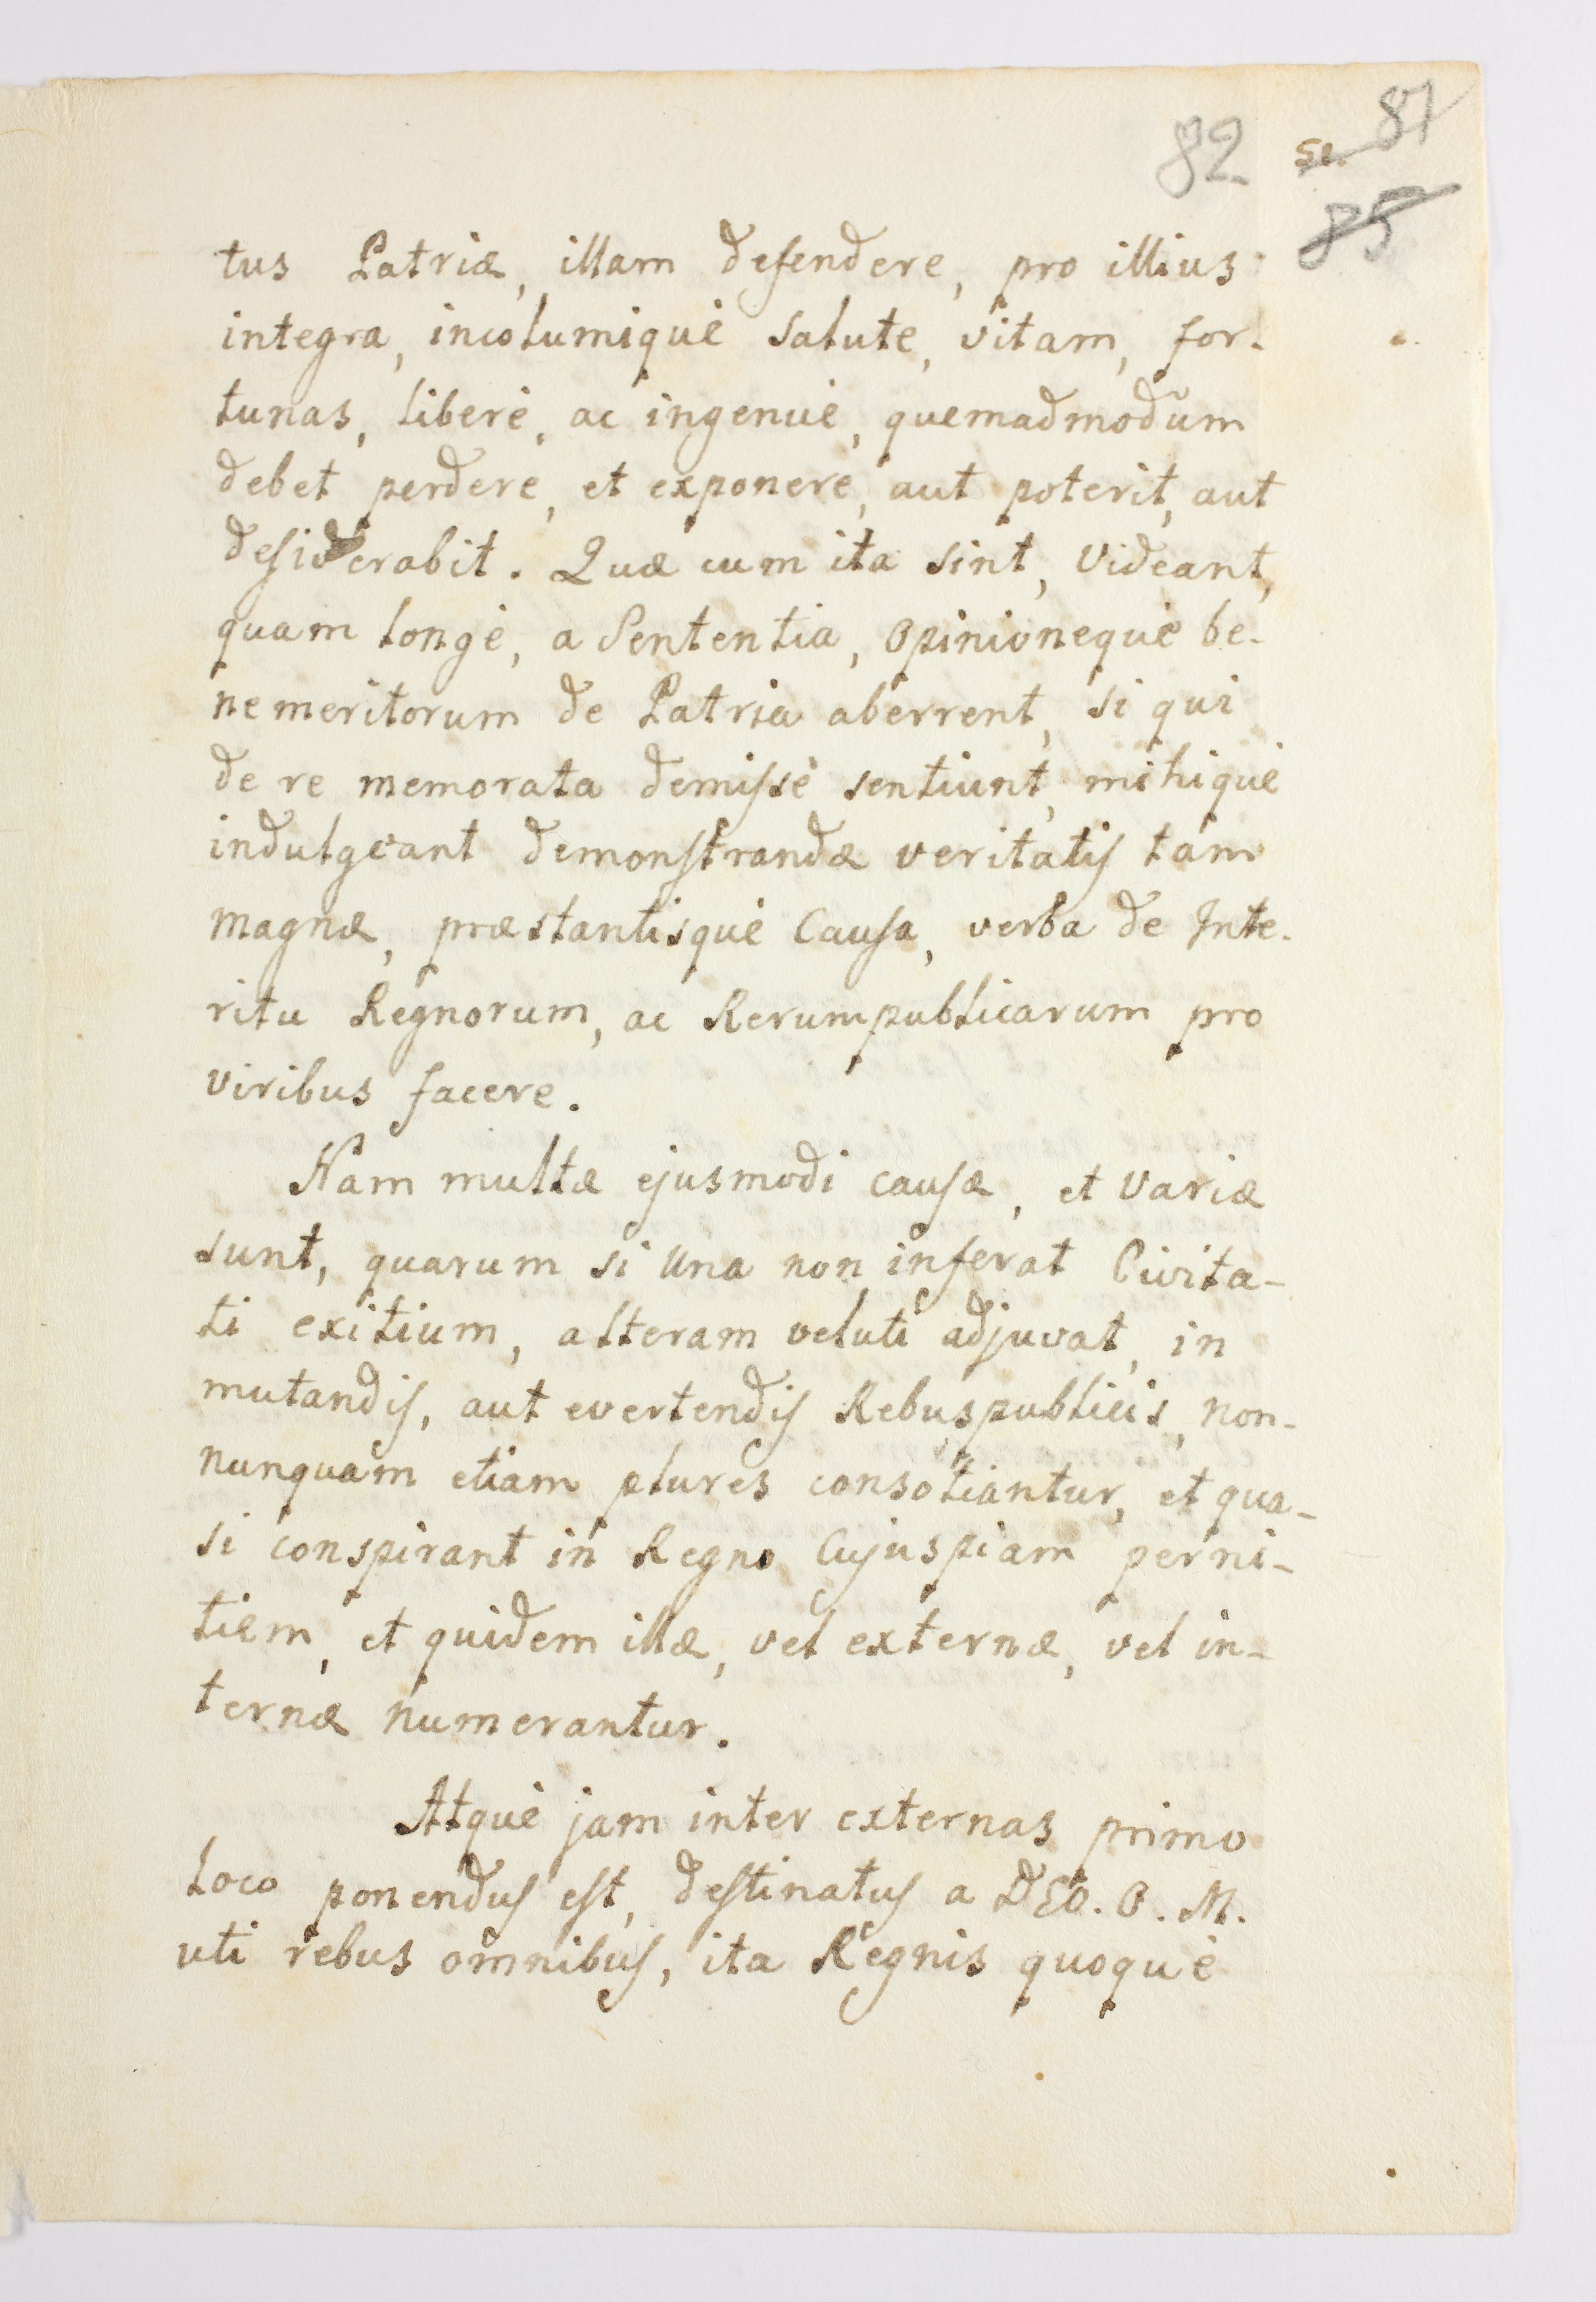 82 51. 87
85
tus Patriæ, illam defendere, pro illius
integra, incolumiquè salute, vitam, for-
tunas, liberè, ac ingenuè, quemadmodum
debet perdere, et exponere, aut poterit, aut
desiderabit. Quæ cum ita sint, Videant,
quam longè, a Sententia, Opinionequè be-
nemeritorum de Patria aberrent, si qui
de re memorata demissè sentiunt, mihiquè
indulgeant demonstrandæ veritatis tam
magnæ, præstantisquè Causa, verba de Inte-
ritu Regnorum, ac Rerumpublicarum pro
viribus facere.
Nam multæ ejusmodi causæ, et Variæ
sunt, quarum si una non inferat Civita-
ti exitium, alteram veluti adjuvat, in
mutandis, aut evertendis Rebuspublicis, non-
nunquam etiam plures consotiantur, et qua-
si conspirant in Regno Cujuspiam perni-
tiem, et quidem illæ, vel externæ, vel in-
ternæ numerantur.
Atquè jam inter externas primo
loco ponendus est, destinatus a DEO. O. M.
uti rebus omnibus, ita Regnis quoquè